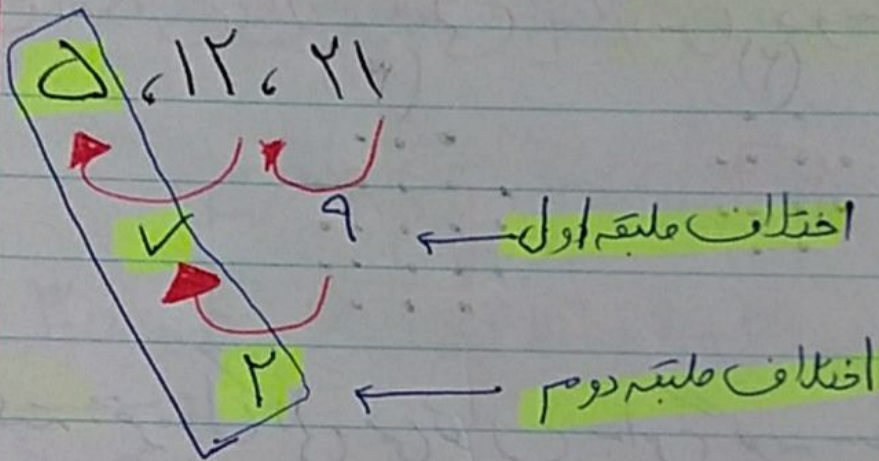 ۵ ، ۱۲ ، ۲۱
۷ ۹ ← اختلاف طبقه اول
۲ ← اختلاف طبقه دوم